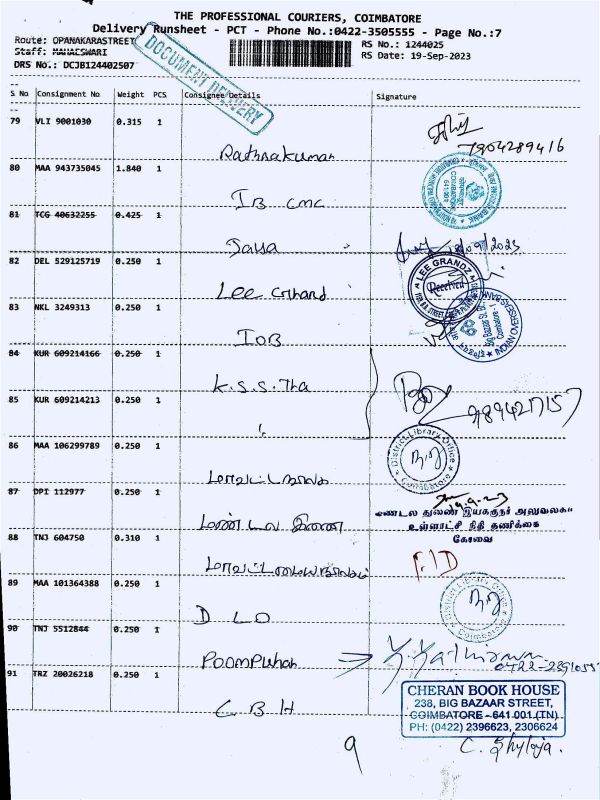 THE PROFESSIONAL COURIERS, COIMBATORE
Delivery Runsheet - PCT - Phone No.:0422-3505555 - Page No.:7
Route: OPANAKARASTREET
RS No.: 1244025
Staff: MAHAESWARI
RS Date: 19-Sep-2023
DRS No.: DCJB124402507
DOCUMENT DELIVERY
S No Consignment No Weight PCS Consignee Details Signature
79 VLI 9001030 0.315 1
Rathnakumar
7904289416
80 MAA 943735045 1.840 1
IB CMC
81 TCG 40632255 0.425 1
Jaya
82 DEL 529125719 0.250 1
Lee Grand
LEE GRANDZ
Received
83 NKL 3249313 0.250 1
IOB
INDIAN OVERSEAS BANK
Big Bazaar St. Br.
Coimbatore - 1
84 KUR 609214166 0.250 1
K.S.S. Tha
85 KUR 609214213 0.250 1
9894217157
86 MAA 106299789 0.250 1
District Library Office
Coimbatore
87 DPI 112977 0.250 1
மண்டல இணை
மண்டல துணை இயக்குநர் அலுவலகம்
உள்ளாட்சி நிதி தணிக்கை
கோவை
88 TNJ 604750 0.310 1
89 MAA 101364388 0.250 1
D L O
District Library Office
Coimbatore
90 TNJ 5512844 0.250 1
Poompuhar
91 TRZ 20026218 0.250 1
C B H
CHERAN BOOK HOUSE
238, BIG BAZAAR STREET,
COIMBATORE - 641 001.(TN)
PH: (0422) 2396623, 2306624
C. Shylaja.
9